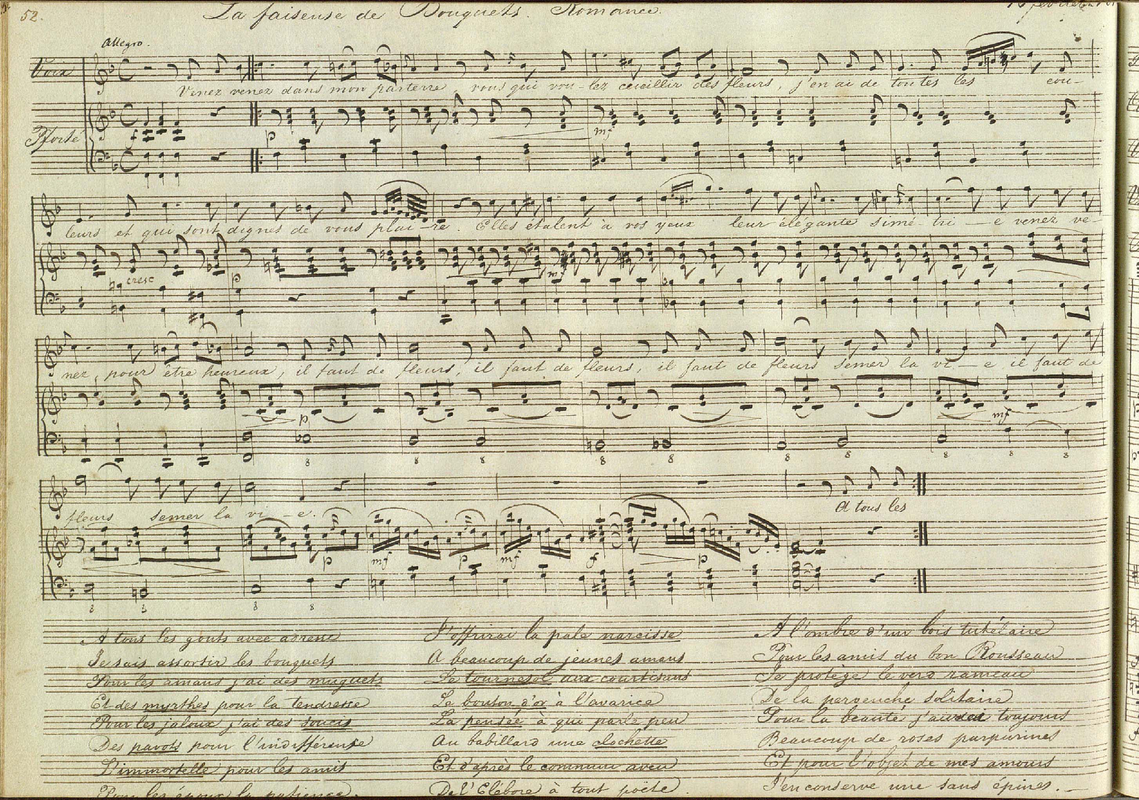 52.
La faiseuse de Bouquets. Romance.
Allegro.
Voix
Venez venez dans mon parterre vous qui vou-lez cueillir des fleurs, j'en ai de toutes les cou-
Pforte
p mf
leurs et qui sont dignes de vous plai-re. Elles étalent à vos yeux leur élégante simé tri e venez ve-
cresc p mf
nez, pour être heureux, il faut de fleurs, il faut de fleurs, il faut de fleurs semer la vi-e il faut de
p mf
8 8 8 8 8 8 8 8 8
fleurs semer la vi-e. A tous les
p mf p mf f p
8 8 8 8
A tous les gouts avec adresse
Je sais assortir les bouquets
Pour les amans j'ai des muguets
Et des myrthes pour la tendresse
Pour les jaloux j'ai des soucis
Des pavots pour l'indifférense
L'immortelle pour les amis
Pour les époux la patience.
J'offrirai la pale narcisse
A beaucoup de jeunes amans
Le tournesol aux courtisans
Le bouton d'or à l'avarice
La pensée à qui parle peu
Au babillard une clochette
Et d'après le commun aveu
De l'Elébore à tout poëte.
A l'ombre d'un bois tutélaire
Pour les amis du bon Rousseau
Je protège le verd rameau
De la pervenche solitaire
Pour la beauté j'aurai toujours
Beaucoup de roses purpurines
Et pour l'objet de mes amours
J'en conserve une sans épines.